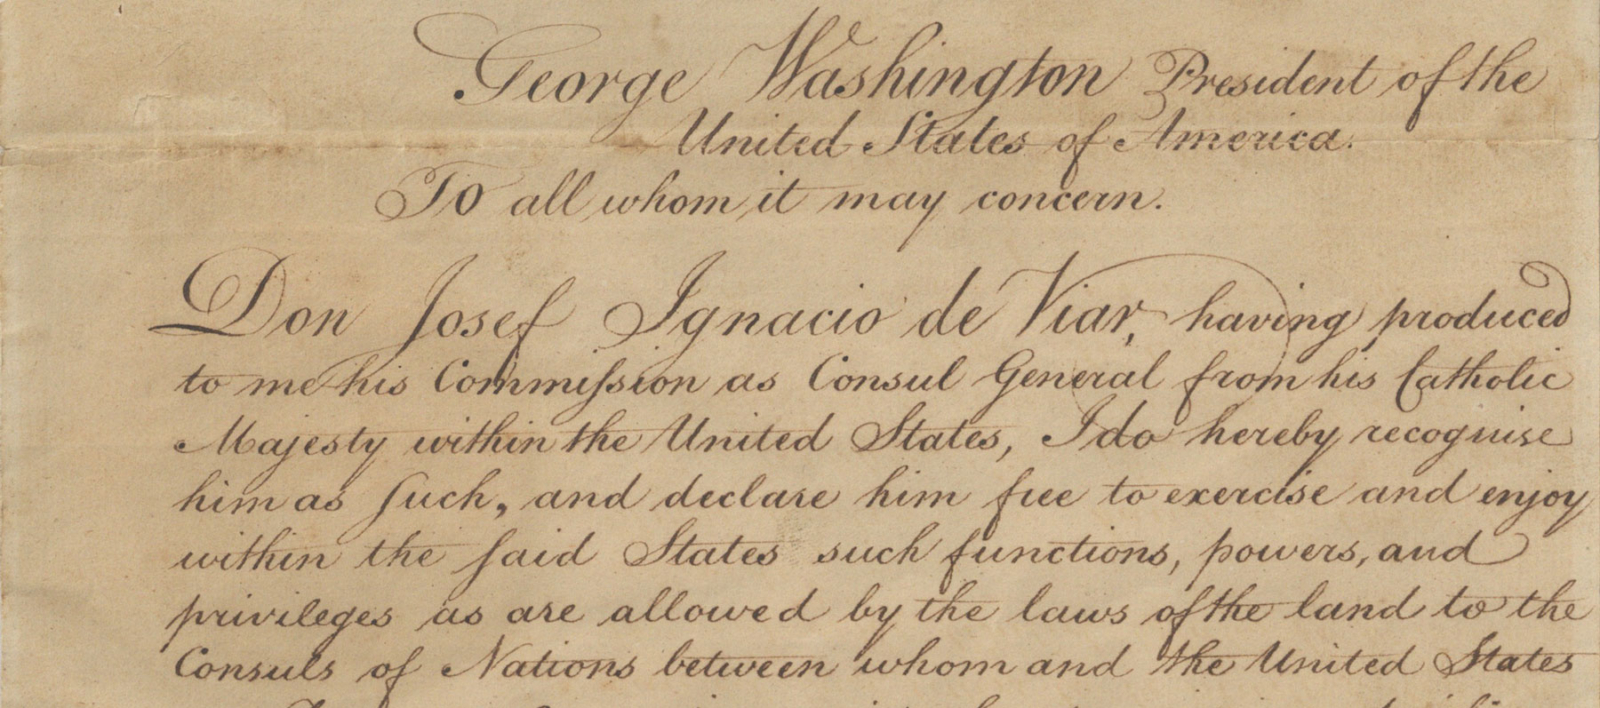 George Washington President of the
United States of America.
To all whom it may concern.
Don Josef Ignacio de Viar, having produced
to me his Commiſsion as Consul General from his Catholic
Majesty within the United States, I do hereby recognise
him as ſuch, and declare him free to exercise and enjoy
within the ſaid States such functions, powers, and
privileges as are allowed by the laws of the land to the
Consuls of Nations between whom and the United States